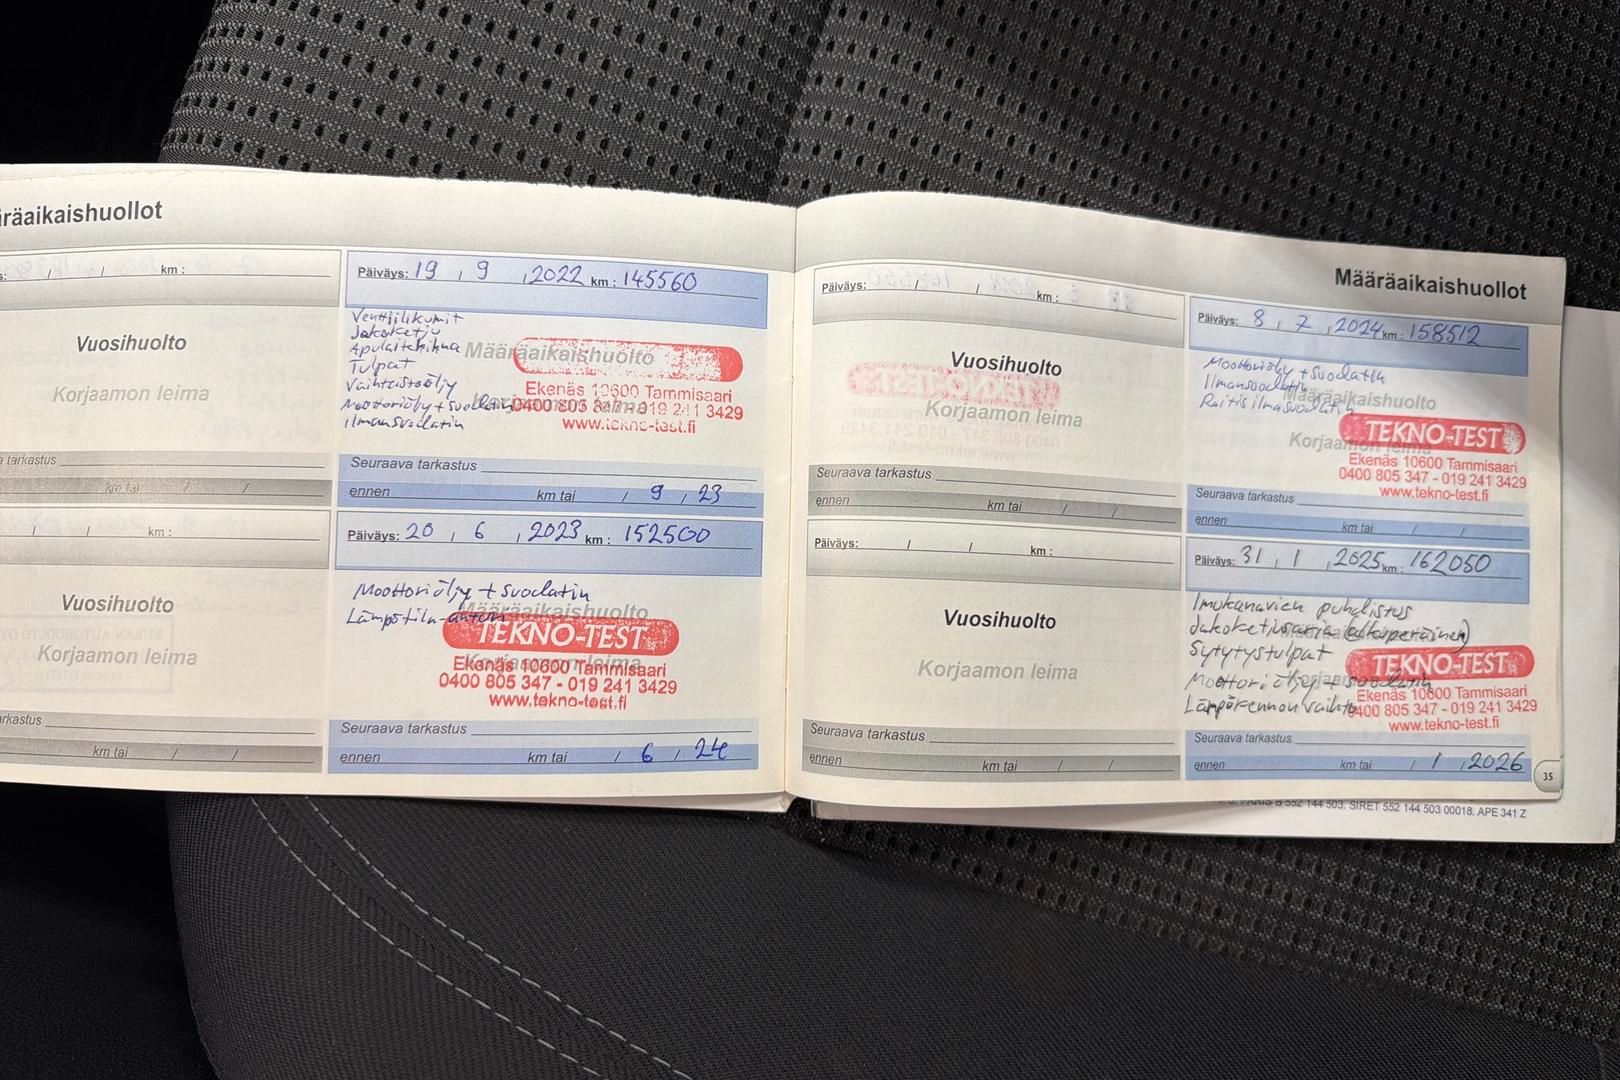 Määräaikaishuollot
km :
Vuosihuolto
Korjaamon leima
tarkastus
km tai / /
/ / km :
Vuosihuolto
Korjaamon leima
rkastus
km tai / /
Päiväys: 19 / 9 / 2022 km : 145560
Venttiilikumit
Jakoketju
Apulaitehihna
Tulpat
Vaihteistoöljy
Moottoriöljy + suodatin
Ilmansuodatin
Määräaikaishuolto
Ekenäs 10600 Tammisaari
0400 805 347 - 019 241 3429
www.tekno-test.fi
Seuraava tarkastus
ennen km tai / 9 / 23
Päiväys: 20 / 6 / 2023 km : 152500
Moottoriöljy + suodatin
Lämpötila-anturi
Määräaikaishuolto
Korjaamon leima
TEKNO-TEST
Ekenäs 10600 Tammisaari
0400 805 347 - 019 241 3429
www.tekno-test.fi
Seuraava tarkastus
ennen km tai / 6 / 24
Määräaikaishuollot
Päiväys: / / km :
Vuosihuolto
Korjaamon leima
Seuraava tarkastus
ennen km tai / /
Päiväys: / / km :
Vuosihuolto
Korjaamon leima
Seuraava tarkastus
ennen km tai / /
Päiväys: 8 / 7 / 2024 km : 158512
Moottoriöljy + suodatin
Ilmansuodatin
Raitisilmasuodatin
Määräaikaishuolto
Korjaamon leima
TEKNO-TEST
Ekenäs 10600 Tammisaari
0400 805 347 - 019 241 3429
www.tekno-test.fi
Seuraava tarkastus
ennen km tai / /
Päiväys: 31 / 1 / 2025 km : 162050
Imukanavien puhdistus
Jakoketjusarja (alkuperäinen)
Sytytystulpat
Moottoriöljy + suodatin
Lämpökennon vaihto
TEKNO-TEST
Ekenäs 10600 Tammisaari
0400 805 347 - 019 241 3429
www.tekno-test.fi
Seuraava tarkastus
ennen km tai / 1 / 2026
35
PARIS B 552 144 503. SIRET 552 144 503 00018. APE 341 Z